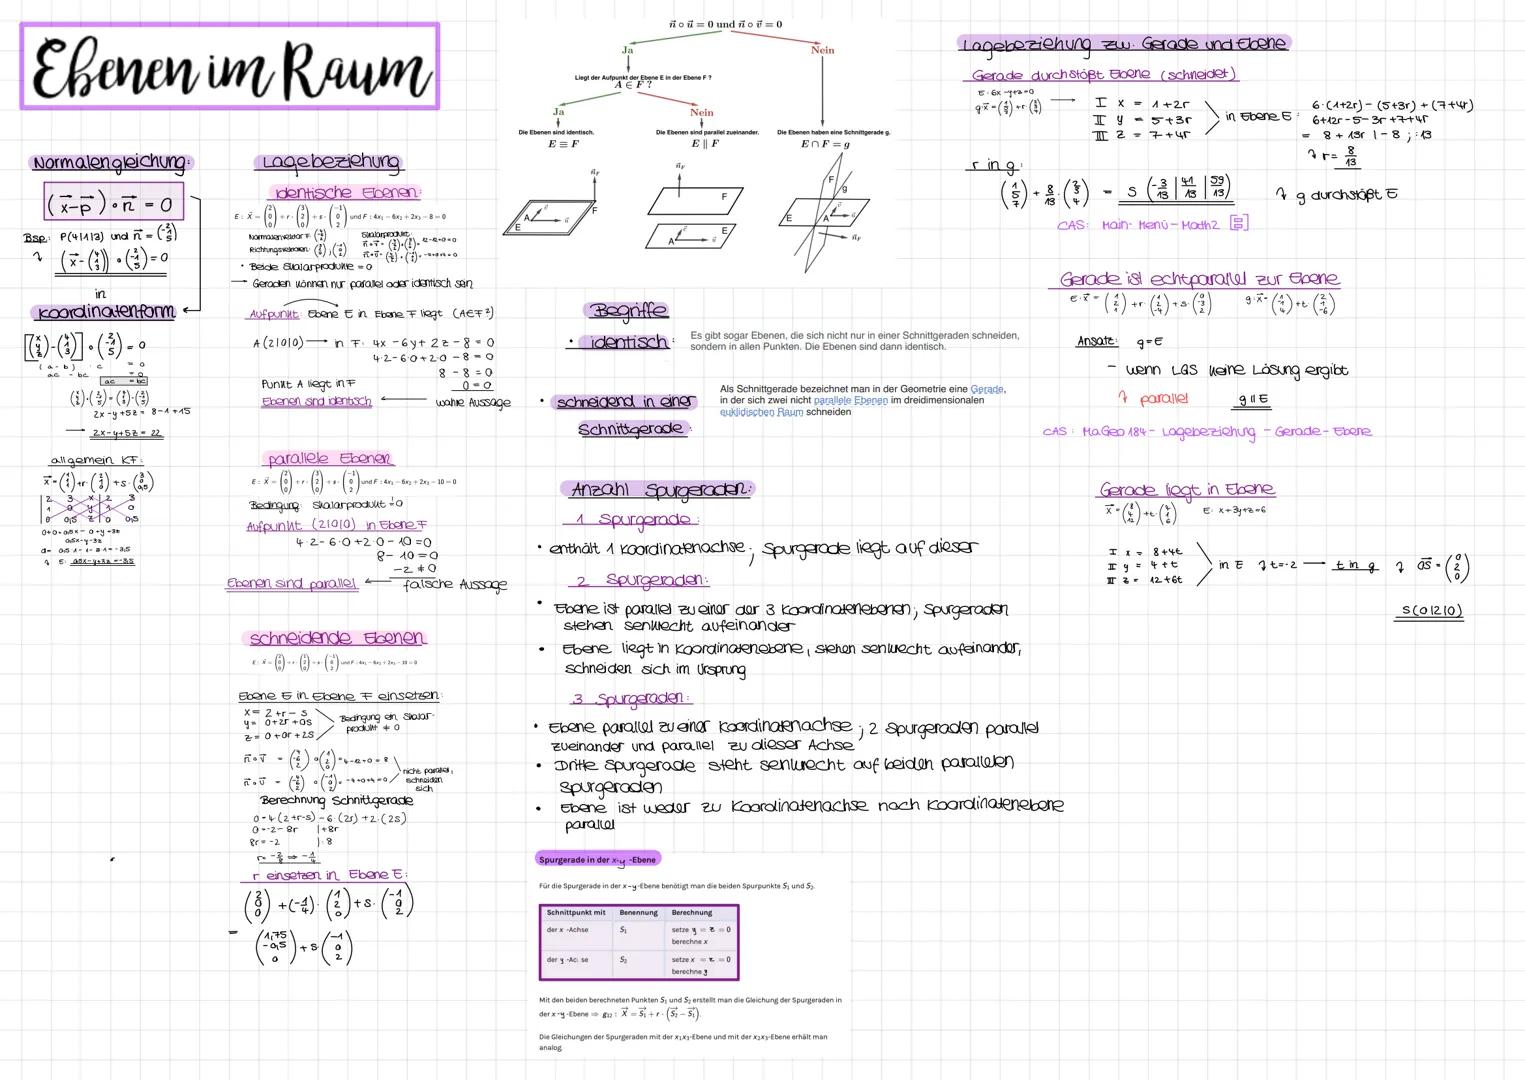 Ebenen im Raum
Normalengleichung:
(x-p) ∘ n = 0
Bsp: P(4|1|3) und n = (2 -1 5)
(x - (4 1 3)) ∘ (2 -1 5) = 0
in
Koordinatenform
2x-y+5z = 8-1+15
2x-y+5z = 22
allgemein KF:
Lagebeziehung
identische Ebenen:
und F: 4x₁ - 6x₂ + 2x₃ - 8 = 0
Skalarprodukt:
• Beide Skalarprodukte = 0
→ Geraden können nur parallel oder identisch sein
Aufpunkt: Ebene E in Ebene F liegt (A∈F?)
A(2|0|0) → in F: 4x - 6y + 2z - 8 = 0
4·2-6·0+2·0 - 8 = 0
8 - 8 = 0
Punkt A liegt in F 0 = 0
Ebenen sind identisch ← wahre Aussage
parallele Ebenen
und F: 4x₁ - 6x₂ + 2x₃ - 10 = 0
Bedingung: Skalarprodukt = 0
Aufpunkt (2|0|0) in Ebene F
4·2-6·0+2·0 - 10 = 0
8 - 10 = 0
-2 ≠ 0
Ebenen sind parallel ← falsche Aussage
schneidende Ebenen
Ebene E in Ebene F einsetzen:
x = 2 + r - s
y = 0 + 2r + 0s
z = 0 + 0r + 2s
Bedingung ein Skalar-
produkt ≠ 0
nicht parallel,
schneiden
sich
Berechnung Schnittgerade
0 = 4(2+r-s) - 6·(2r) + 2·(2s)
0 = -2 - 8r |+8r
8r = -2 |:8
r = -2/8 ⇒ -1/4
r einsetzen in Ebene E:
(2 0 0) + (-1/4) · (1 2 0) + s · (-1 0 2)
= (1,75 -0,5 0) + s · (-1 0 2)
n ∘ u = 0 und n ∘ v = 0
Ja Nein
Liegt der Aufpunkt der Ebene E in der Ebene F ?
A ∈ F ?
Ja Nein
Die Ebenen sind identisch. Die Ebenen sind parallel zueinander. Die Ebenen haben eine Schnittgerade g.
E ≡ F E ∥ F E ∩ F = g
Begriffe
• identisch: Es gibt sogar Ebenen, die sich nicht nur in einer Schnittgeraden schneiden,
sondern in allen Punkten. Die Ebenen sind dann identisch.
• schneidend in einer
Schnittgerade:
Als Schnittgerade bezeichnet man in der Geometrie eine Gerade,
in der sich zwei nicht parallele Ebenen im dreidimensionalen
euklidischen Raum schneiden
Anzahl Spurgeraden:
1 Spurgerade:
• enthält 1 Koordinatenachse; Spurgerade liegt auf dieser
2 Spurgeraden:
• Ebene ist parallel zu einer der 3 Koordinatenebenen; Spurgeraden
stehen senkrecht aufeinander
• Ebene liegt in Koordinatenebene, stehen senkrecht aufeinander,
schneiden sich im Ursprung
3 Spurgeraden:
• Ebene parallel zu einer Koordinatenachse; 2 Spurgeraden parallel
zueinander und parallel zu dieser Achse
• Dritte Spurgerade steht senkrecht auf beiden parallelen
Spurgeraden
• Ebene ist weder zu Koordinatenachse noch Koordinatenebene
parallel
Spurgerade in der x-y -Ebene
Für die Spurgerade in der x-y-Ebene benötigt man die beiden Spurpunkte S₁ und S₂.
Schnittpunkt mit Benennung Berechnung
der x -Achse S₁ setze y = z = 0
berechne x
der y -Achse S₂ setze x = z = 0
berechne y
Mit den beiden berechneten Punkten S₁ und S₂ erstellt man die Gleichung der Spurgeraden in
der x-y-Ebene ⇒ g₁₂ : X = S₁ + r · (S₂ - S₁).
Die Gleichungen der Spurgeraden mit der x₁x₃-Ebene und mit der x₂x₃-Ebene erhält man
analog.
Lagebeziehung zw. Gerade und Ebene
Gerade durchstößt Ebene (schneidet)
E: 6x-y+z=0
I x = 1+2r
II y = 5+3r
III z = 7+4r
in Ebene E:
6·(1+2r) - (5+3r) + (7+4r)
6+12r-5-3r+7+4r
= 8 + 13r |-8 ; :13
r = 8/13
r in g:
(1 5 7) + 8/13 · (2 3 4) = S (-3/13 | 41/13 | 59/13) g durchstößt E
CAS: Main-Menü-Math2
Gerade ist echt parallel zur Ebene
Ansatz: g=E
- wenn LGS keine Lösung ergibt
parallel g∥E
CAS: MaGeo 184- Lagebeziehung - Gerade-Ebene
Gerade liegt in Ebene
E: x+3y+z=6
I x = 8+4t
II y = 4+t
III z = 12+6t
in E t=-2 → t in g OS = (0 2 0)
S(0|2|0)